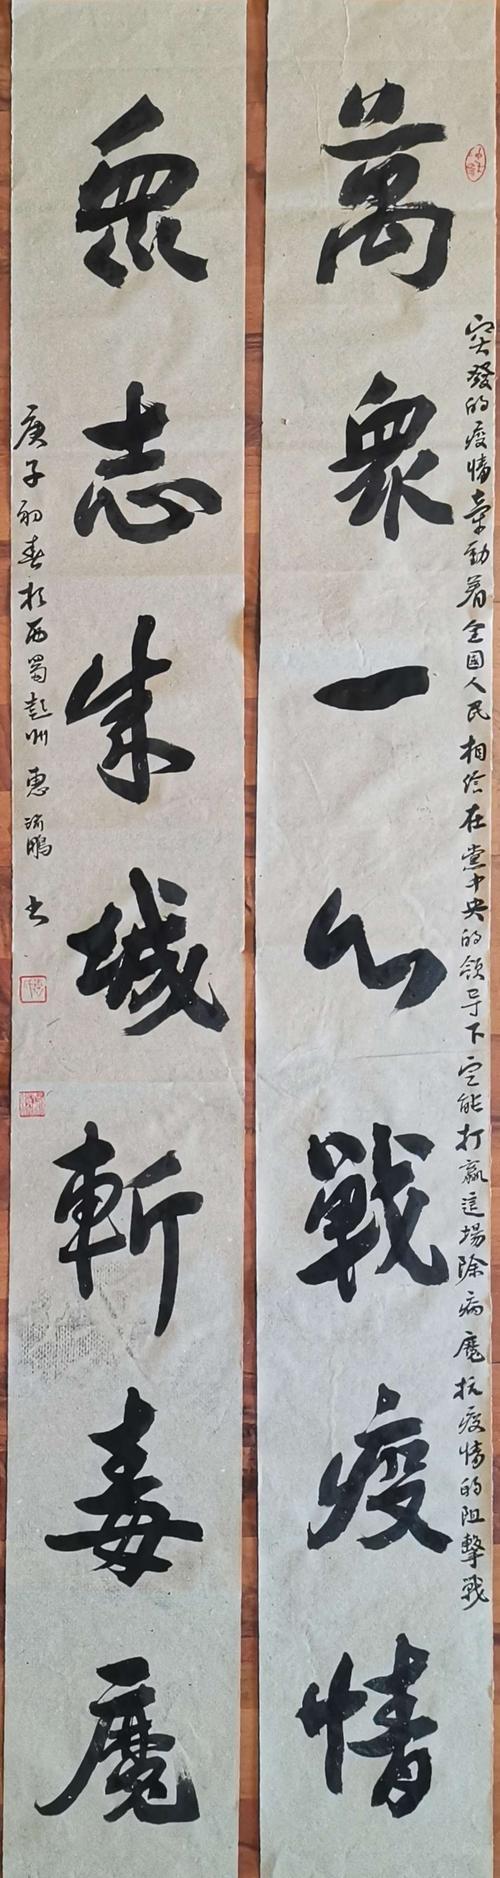 萬衆一心戰疫情
突發的疫情牽動着全國人民相信在黨中央的領导下定能打贏這場除病魔抗疫情的阻擊戰
衆志成城斬毒魔
庚子初春於西蜀彭州惠鵬书